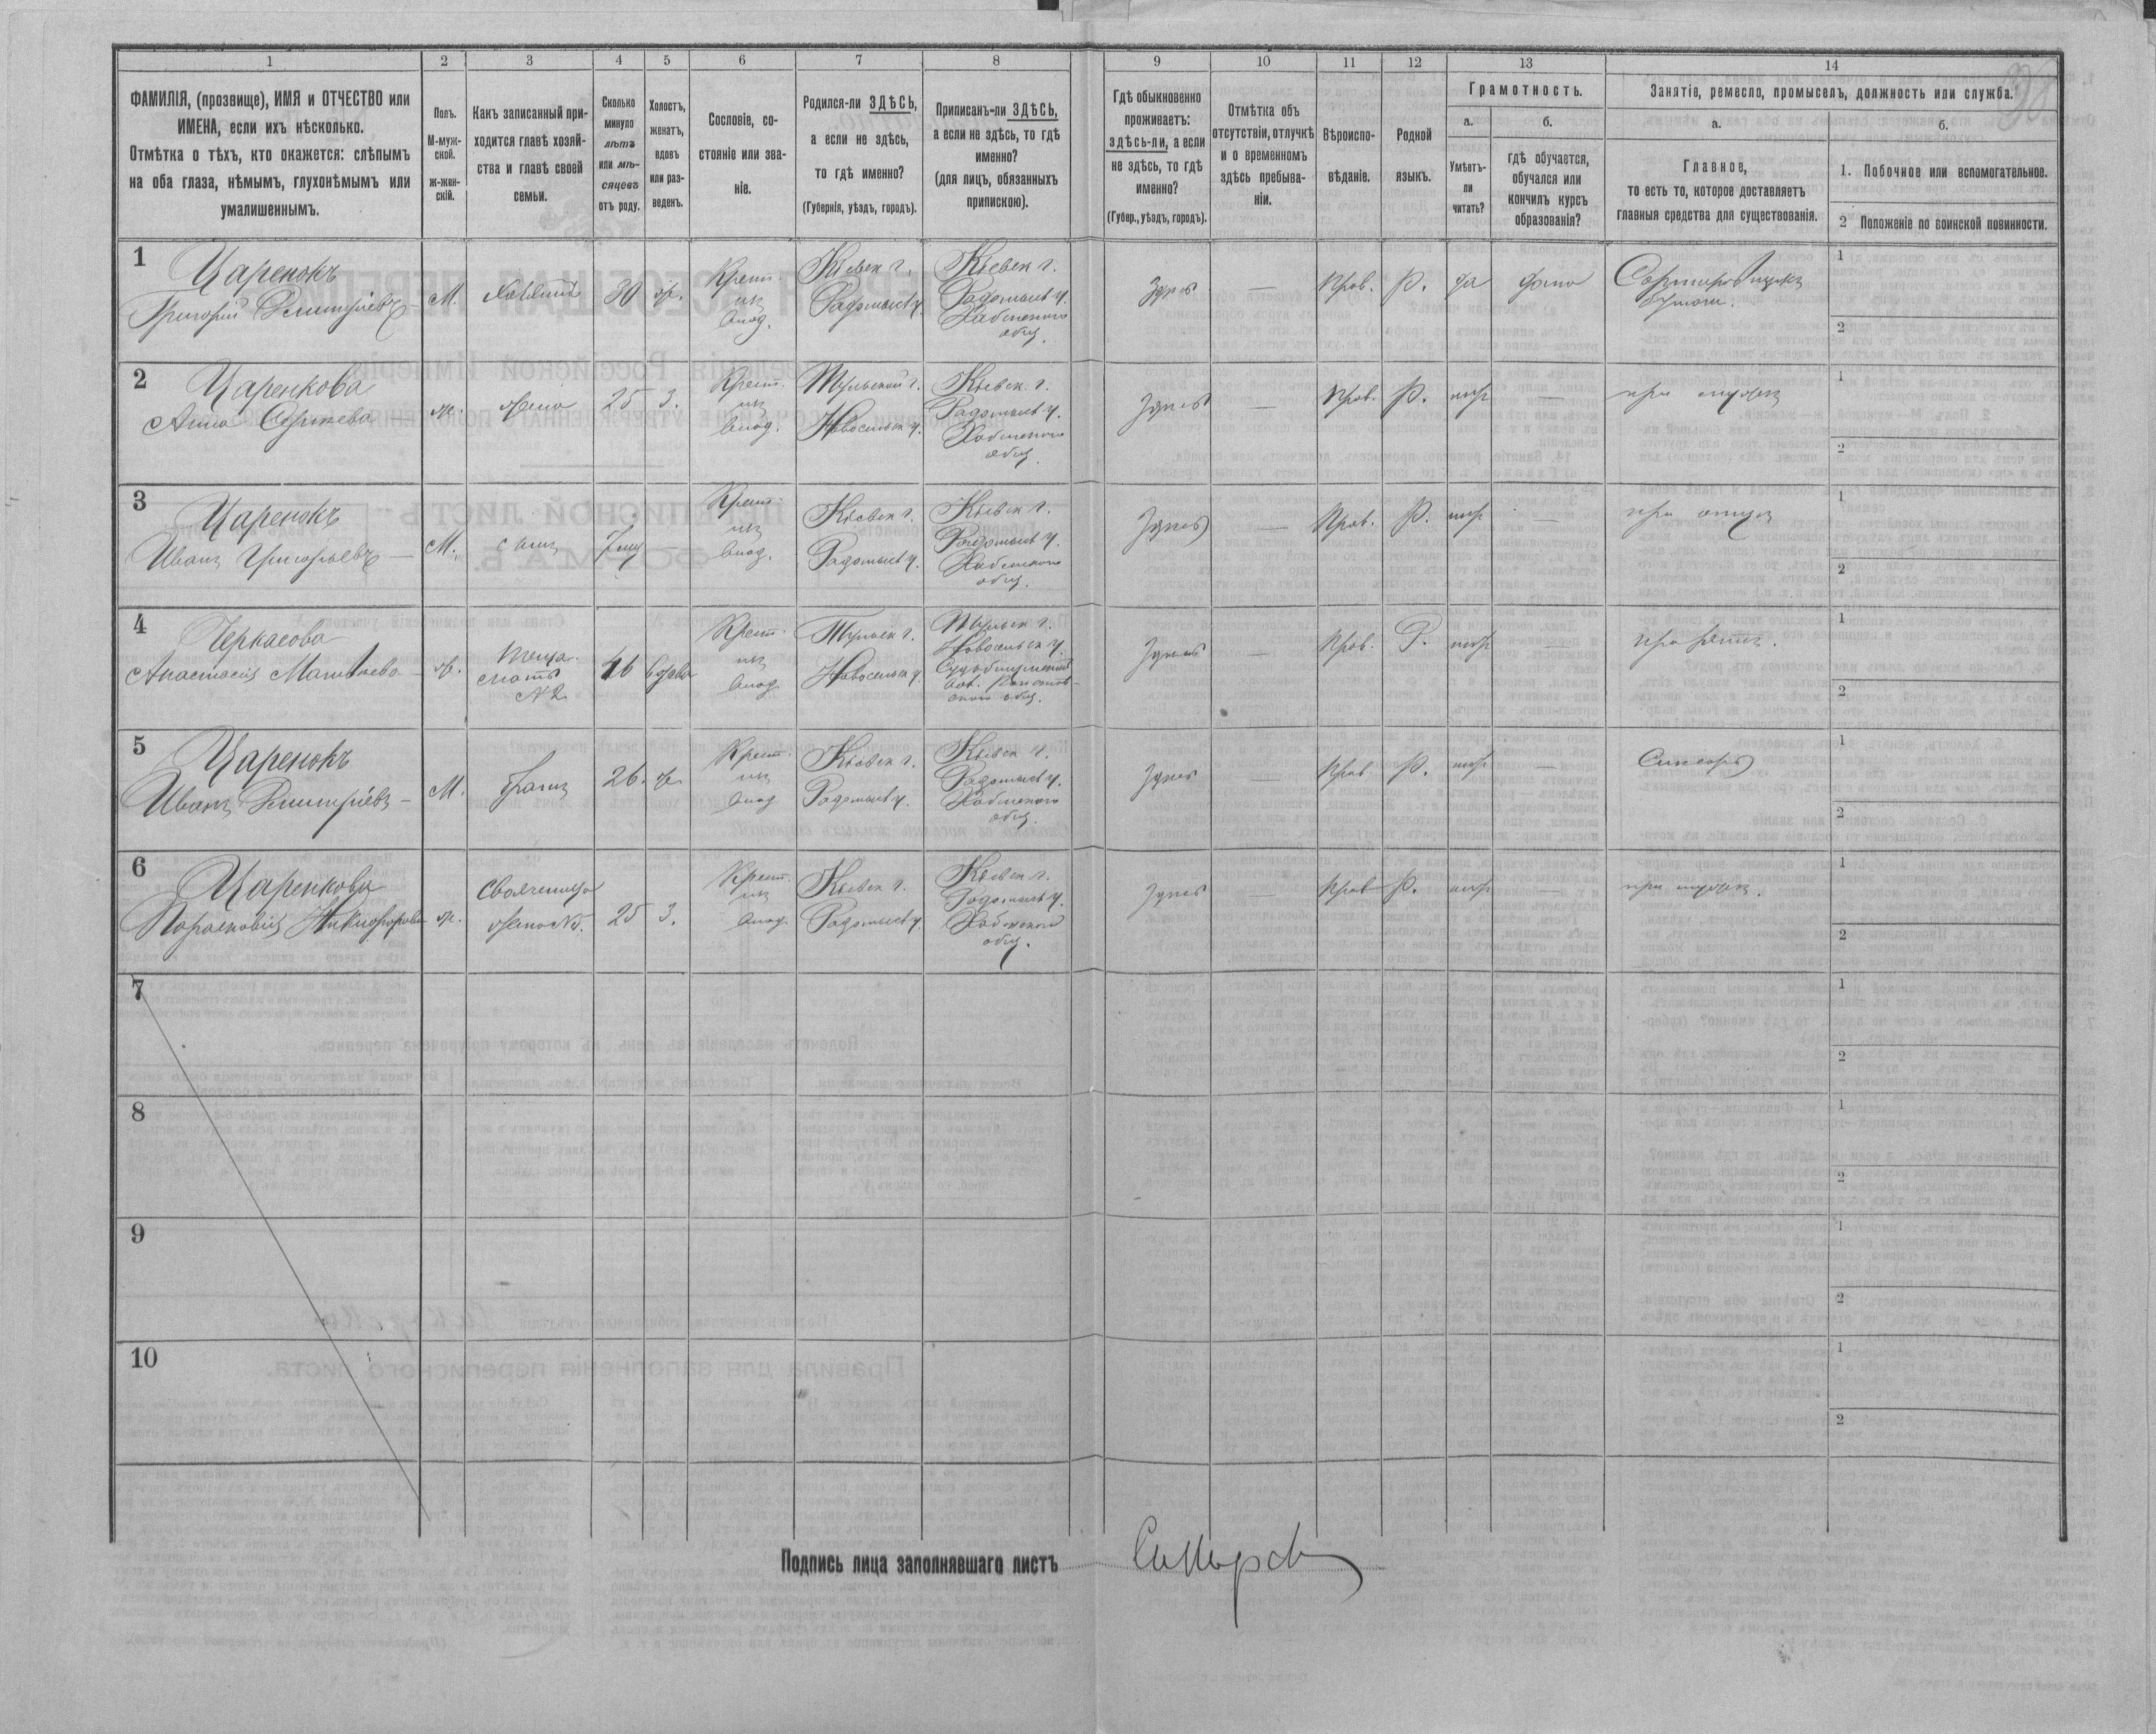 1 2 3 4 5 6 7 8 9 10 11 12 13 14
ФАМИЛІЯ, (прозвище), ИМЯ и ОТЧЕСТВО или
ИМЕНА, если ихъ нѣсколько.
Отмѣтка о тѣхъ, кто окажется: слѣпымъ
на оба глаза, нѣмымъ, глухонѣмымъ или
умалишеннымъ.
Полъ.
М-муж-
ской.
ж-жен-
скій.
Какъ записанный при-
ходится главѣ хозяй-
ства и главѣ своей
семьи.
Сколько
минуло
лѣтъ
или мѣ-
сяцевъ
отъ роду.
Холостъ,
женатъ,
вдовъ
или раз-
веденъ.
Сословіе, со-
стояніе или зва-
ніе.
Родился-ли ЗДѢСЬ,
а если не здѣсь,
то гдѣ именно?
(Губернія, уѣздъ, городъ).
Приписанъ-ли ЗДѢСЬ,
а если не здѣсь, то гдѣ
именно?
(для лицъ, обязанныхъ
припискою).
Гдѣ обыкновенно
проживаетъ:
здѣсь-ли, а если
не здѣсь, то гдѣ
именно?
(Губер., уѣздъ, городъ).
Отмѣтка объ
отсутствіи, отлучкѣ
и о временномъ
здѣсь пребыва-
ніи.
Вѣроиспо-
вѣданіе.
Родной
языкъ.
Грамотность.
а.
Умѣетъ-
ли
читать?
б.
гдѣ обучается,
обучался или
кончилъ курсъ
образованія?
Занятіе, ремесло, промыселъ, должность или служба.
а.
Главное,
то есть то, которое доставляетъ
главныя средства для существованія.
б.
1. Побочное или вспомогательное.
2 Положеніе по воинской повинности.
1
Царенокъ
Григорій Дмитріевъ
М. хозяинъ 30 ж. Крест. из влад.
Кіевск г.
Радомысл у.
Кіевск г.
Радомысл у.
Хабенскаго
общ.
Здѣсь — Прав. Р. да
Сортировщикъ
бумаги.
1
2
2
Царенкова
Анна Сергѣева
ж. жена 25 З. Крест. из влад.
Тульской г.
Новосильск у.
Кіевск. г.
Радомысл у.
Хабенскаго
общ.
Здѣсь — Прав. Р. нѣт —
при мужѣ
1
2
3
Царенокъ
Иванъ Григорьевъ —
М. сынъ — Крест. из влад.
Кіевск г.
Радомысл у.
Кіевск г.
Радомысл у.
Хабенскаго
общ.
Здѣсь — Прав. Р. нѣт —
при отцѣ
1
2
4
Черкасова
Анастасія Матвѣева
ж. теща
мать
№ 2
46 вдова Крест. из влад.
Тульск г.
Новосильск у.
Тульск г.
Новосильск у.
общ.
Здѣсь — Прав. Р. нѣт —
при зятѣ.
1
2
5
Царенокъ
Иванъ Дмитріевъ —
М. братъ 26. ж. Крест. из влад
Кіевск г.
Радомысл у.
Кіевск г.
Радомысл у.
Хабенскаго
общ.
Здѣсь — Прав. Р. нѣт —
1
2
6
Царенкова
Парасковія Никифорова
ж. Своячени­ца
жена № 5.
25 З. Крест. из влад.
Кіевск г.
Радомысл у.
Кіевск г.
Радомысл у.
Хабенскаго
общ.
Здѣсь — Прав Р. нѣт —
при мужѣ.
1
2
7
1
2
8
1
2
9
1
2
10
1
2
Подпись лица заполнявшаго листъ